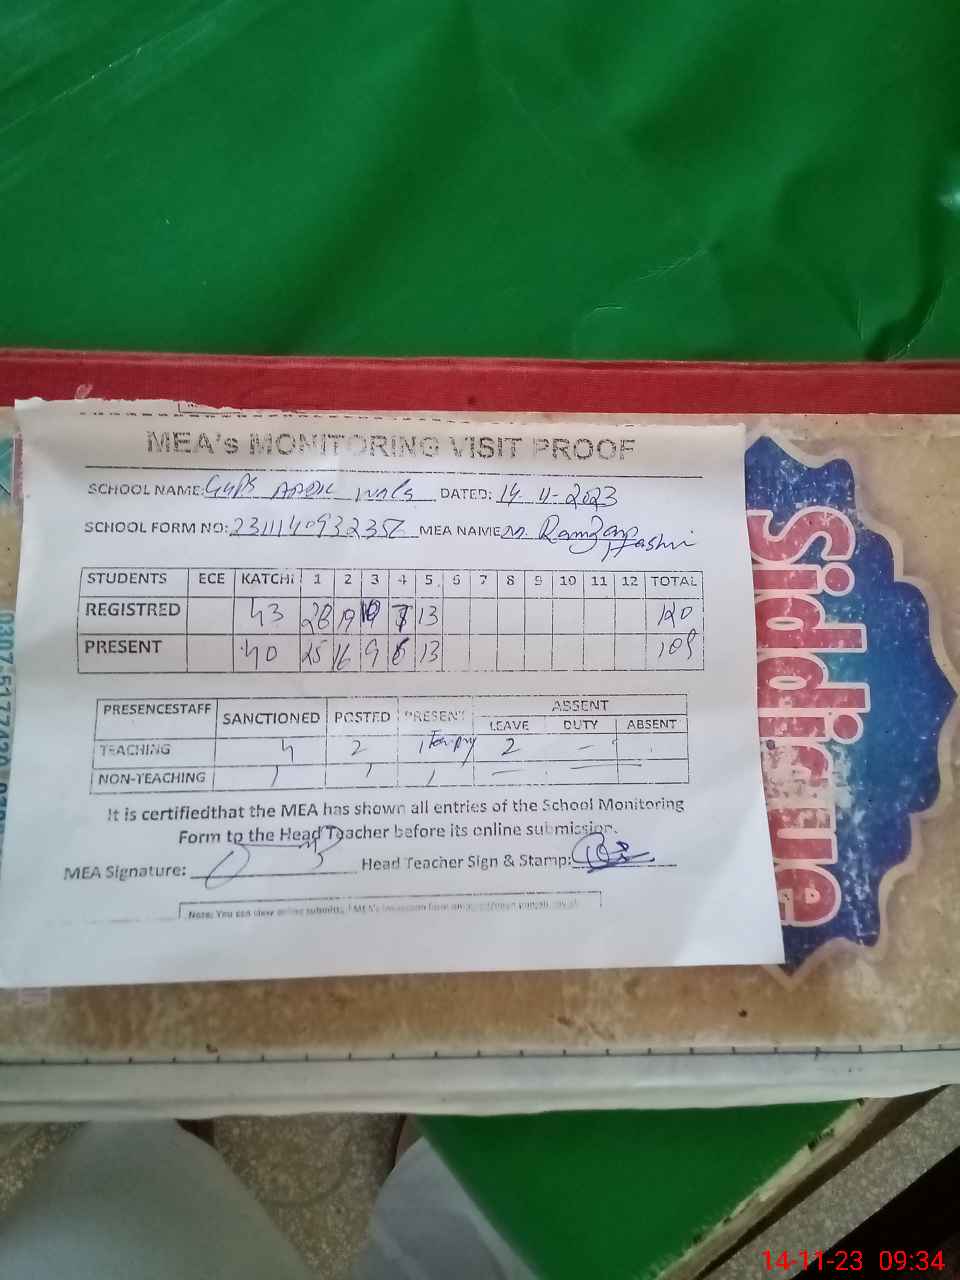 MEA's MONITORING VISIT PROOF
SCHOOL NAME: GGPS DATED: 14-11-2023
SCHOOL FORM NO: MEA NAME: M. Ramzan Hashmi
STUDENTS ECE KATCHI 1 2 3 4 5 6 7 8 9 10 11 12 TOTAL
REGISTRED 43 28 19 10 7 13 120
PRESENT 40 25 16 9 6 13 109
PRESENCESTAFF SANCTIONED POSTED PRESENT ABSENT
LEAVE DUTY ABSENT
TEACHING 4 2 2 –
NON-TEACHING 1 1 1 – –
It is certifiedthat the MEA has shown all entries of the School Monitoring
Form to the Head Teacher before its online submission.
MEA Signature: Head Teacher Sign & Stamp:
Note: You can view online
Siddique
14-11-23 09:34